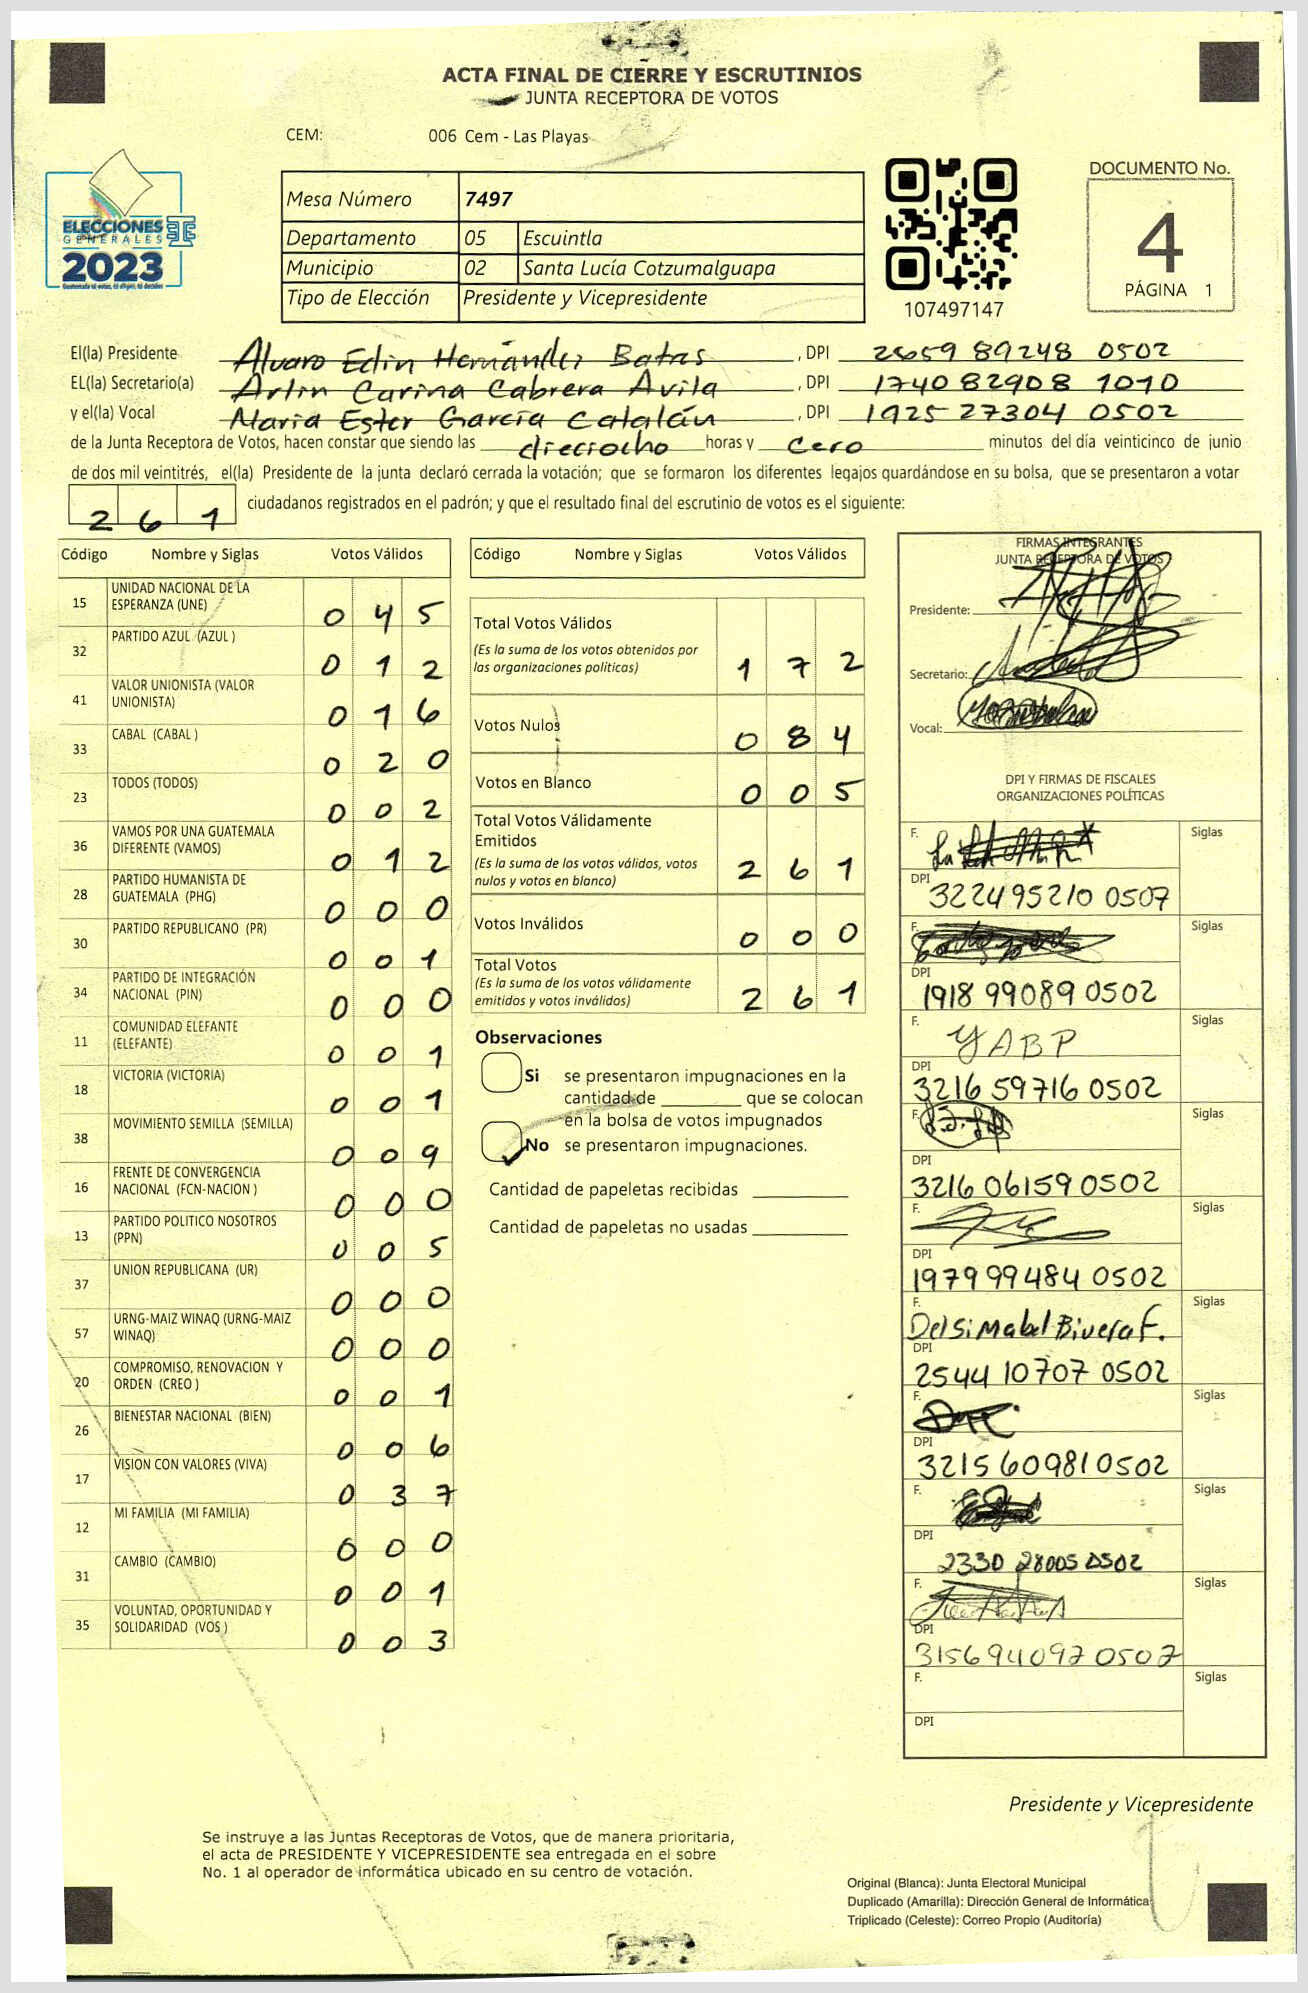 ACTA FINAL DE CIERRE Y ESCRUTINIOS
JUNTA RECEPTORA DE VOTOS
CEM: 006 Cem - Las Playas
ELECCIONES
GENERALES
2023
Mesa Número 7497
Departamento 05 Escuintla
Municipio 02 Santa Lucía Cotzumalguapa
Tipo de Elección Presidente y Vicepresidente
107497147
DOCUMENTO No.
4
PÁGINA 1
El(la) Presidente Alvaro Edin Hernández Batres , DPI 2659 89248 0502
EL(la) Secretario(a) Arlin Carina Cabrera Avila , DPI 1740 82908 1010
y el(la) Vocal Maria Ester García Catalán , DPI 1925 27304 0502
de la Junta Receptora de Votos, hacen constar que siendo las dieciocho horas y cero minutos del día veinticinco de junio
de dos mil veintitrés, el(la) Presidente de la junta declaró cerrada la votación; que se formaron los diferentes legajos guardándose en su bolsa, que se presentaron a votar
261 ciudadanos registrados en el padrón; y que el resultado final del escrutinio de votos es el siguiente:
Código Nombre y Siglas Votos Válidos
15 UNIDAD NACIONAL DE LA ESPERANZA (UNE) 0 4 5
32 PARTIDO AZUL (AZUL ) 0 1 2
41 VALOR UNIONISTA (VALOR UNIONISTA) 0 1 6
33 CABAL (CABAL ) 0 2 0
23 TODOS (TODOS) 0 0 2
36 VAMOS POR UNA GUATEMALA DIFERENTE (VAMOS) 0 1 2
28 PARTIDO HUMANISTA DE GUATEMALA (PHG) 0 0 0
30 PARTIDO REPUBLICANO (PR) 0 0 1
34 PARTIDO DE INTEGRACIÓN NACIONAL (PIN) 0 0 0
11 COMUNIDAD ELEFANTE (ELEFANTE) 0 0 1
18 VICTORIA (VICTORIA) 0 0 1
38 MOVIMIENTO SEMILLA (SEMILLA) 0 0 9
16 FRENTE DE CONVERGENCIA NACIONAL (FCN-NACION ) 0 0 0
13 PARTIDO POLITICO NOSOTROS (PPN) 0 0 5
37 UNION REPUBLICANA (UR) 0 0 0
57 URNG-MAIZ WINAQ (URNG-MAIZ WINAQ) 0 0 0
20 COMPROMISO, RENOVACION Y ORDEN (CREO ) 0 0 1
26 BIENESTAR NACIONAL (BIEN) 0 0 6
17 VISION CON VALORES (VIVA) 0 3 7
12 MI FAMILIA (MI FAMILIA) 0 0 0
31 CAMBIO (CAMBIO) 0 0 1
35 VOLUNTAD, OPORTUNIDAD Y SOLIDARIDAD (VOS ) 0 0 3
Código Nombre y Siglas Votos Válidos
Total Votos Válidos
(Es la suma de los votos obtenidos por
las organizaciones políticas) 1 7 2
Votos Nulos 0 8 4
Votos en Blanco 0 0 5
Total Votos Válidamente
Emitidos
(Es la suma de los votos válidos, votos
nulos y votos en blanco) 2 6 1
Votos Inválidos 0 0 0
Total Votos
(Es la suma de los votos válidamente
emitidos y votos inválidos) 2 6 1
Observaciones
Si se presentaron impugnaciones en la
cantidad de ________ que se colocan
en la bolsa de votos impugnados
No se presentaron impugnaciones.
Cantidad de papeletas recibidas
Cantidad de papeletas no usadas
FIRMAS INTEGRANTES
JUNTA RECEPTORA DE VOTOS
Presidente:
Secretario:
Vocal:
DPI Y FIRMAS DE FISCALES
ORGANIZACIONES POLÍTICAS
F. Siglas
DPI 3224 95210 0507
F. Siglas
DPI 1918 99089 0502
F. YABP Siglas
DPI 3216 59716 0502
F. Siglas
DPI 3216 06159 0502
F. Siglas
DPI 1979 99484 0502
F. Delsi Mabel Rivera F. Siglas
DPI 2544 10707 0502
F. Siglas
DPI 3215 60981 0502
F. Siglas
DPI 2330 28005 0502
F. Siglas
DPI 3156 94097 0507
F. Siglas
DPI
Presidente y Vicepresidente
Se instruye a las Juntas Receptoras de Votos, que de manera prioritaria,
el acta de PRESIDENTE Y VICEPRESIDENTE sea entregada en el sobre
No. 1 al operador de informática ubicado en su centro de votación.
Original (Blanca): Junta Electoral Municipal
Duplicado (Amarilla): Dirección General de Informática
Triplicado (Celeste): Correo Propio (Auditoría)